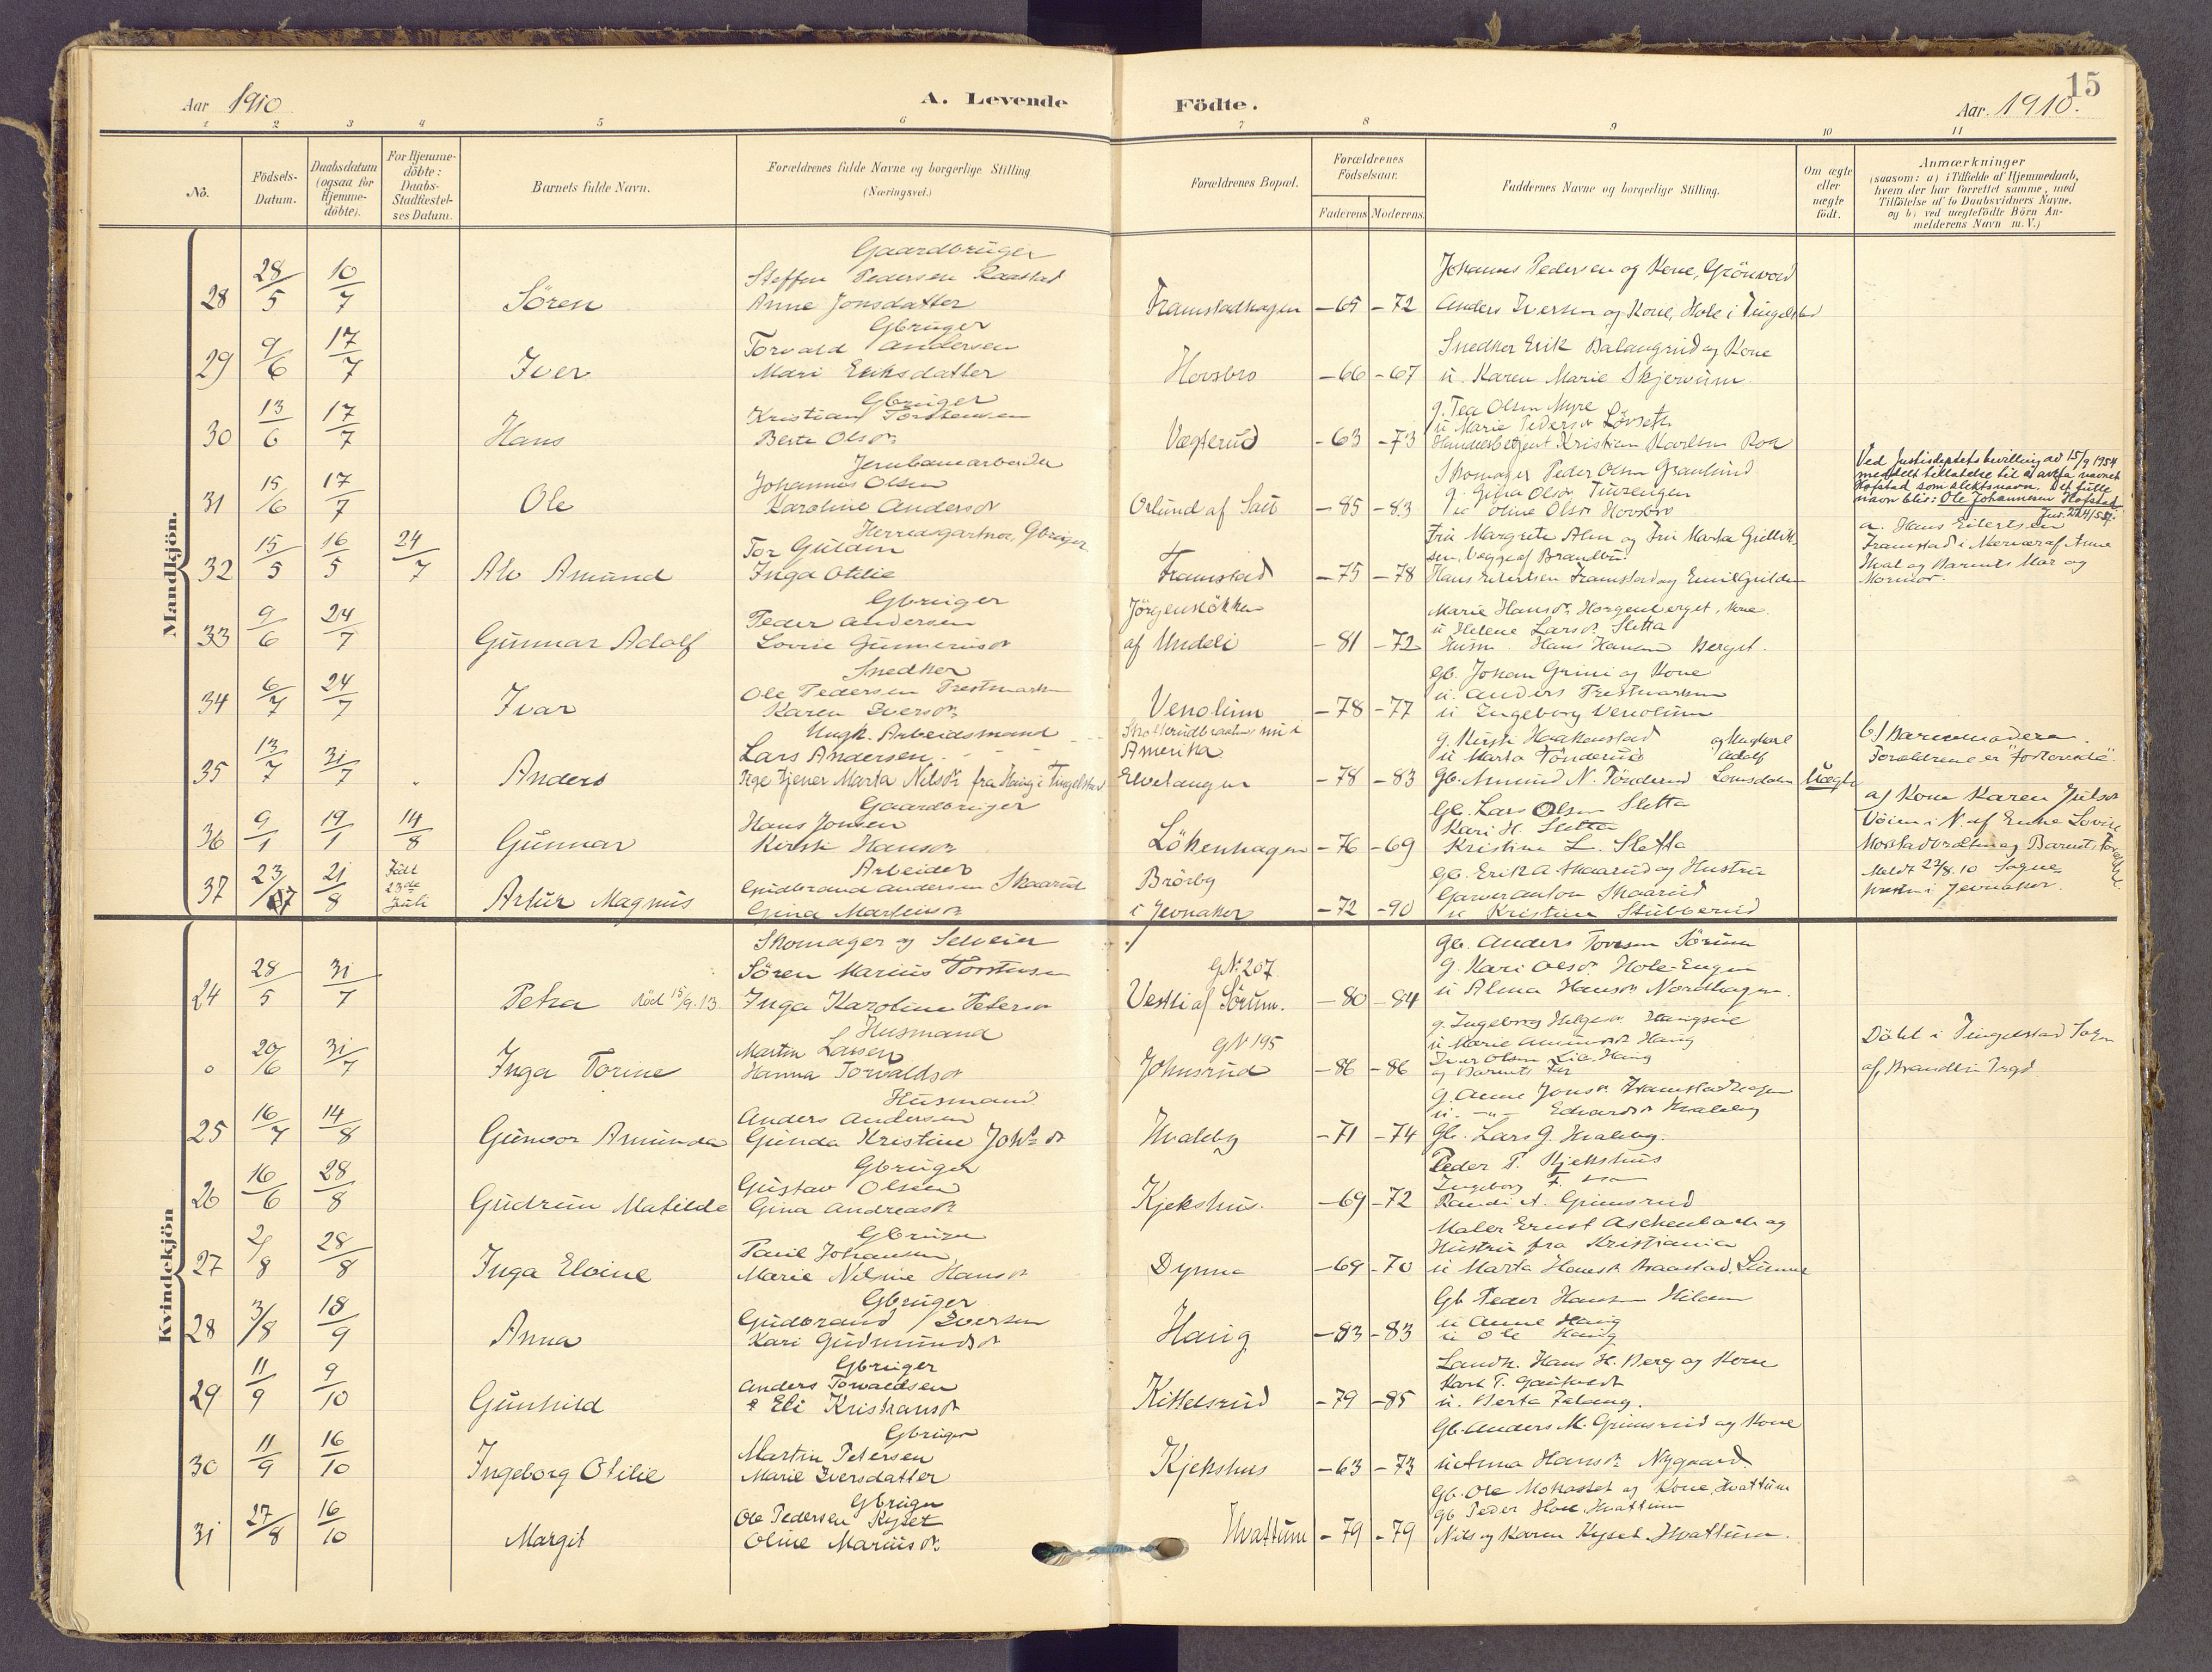 15
Aar 1910
A. Levende
Födte.
Aar 1910.
1 2 3 4 5 6 7 8 9 10 11
No.
Födsels-
Datum.
Daabsdatum
(ogsaa for
Hjemme-
döbte).
For Hjemme-
döbte:
Daabs-
Stadfæstel-
ses Datum.
Barnets fulde Navn.
Forældrenes fulde Navne og borgerlige Stilling
(Næringsvei.)
Forældrenes Bopæl.
Forældrenes
Födselsaar.
Faderens Moderens
Faddernes Navne og borgerlige Stilling.
Om ægte
eller
uægte
födt.
Anmærkninger
(saasom: a) i Tilfælde af Hjemmedaab,
hvem der har forrettet samme, med
Tilföielse af to Daabsvidners Navne.
og b) ved uægtefödte Börn An-
melderens Navn m.V.)
Mandkjön.
Gaardbruger
28 28/5 10/7 Sören
Steffen Pedersen Raastad
Anne Jonsdatter
Framstadhagen -65 -72
Johannes Pedersen og Kone, Grönvold
Anders Iversen og Kone, Hole i Tingelstad
Gbruger
29 9/6 17/7 Iver
Torvald Andersen
Mari Eriksdatter
Hovsbro -66 -67
Snedker Erik Dalangrud og Kone
u. Karen Marie Skjervum.
Gbruger
30 13/6 17/7 Hans
Kristian Torstensen
Berte Olsdr
Vægterud -63 -73
g. Tea Olsen Myre
u Marie Pedersdr Lövseth
Handelsbetjent Kristian Karlsen Roa
Jernbanearbeider
31 15/6 17/7 Ole
Johannes Olsen
Karoline Andersdr
Orlund af Sau -85 -83
Skomager Peder Olsen Granlund
g. Gina Olsdr Tuvengen
u Oline Olsdr Hovsbro
Ved Justisdeptets bevilling av 15/9 1954
meddelt tillatelse til å anta navnet
Hofstad som slektsnavn. Det fulle
navn blir: Ole Johannesen Hofstad
Herredsgartner, Gbruger
32 15/5 16/5 24/7 Alv Amund
Tor Gulden
Inga Otilie
Framstad -75 -78
Fru Margrete Alm og Fru Marta Gullik-
sen, begge af Brandbu
Hans Eilertsen Framstad og Emil Gulden
a. Hans Eilertsen
Framstad i Nærvær af Anne
Hval og Barnets Mor og
Mormor.
Gbruger
33 9/6 24/7 Gunnar Adolf
Peder Andersen
Lovise Gunnerusdr
Jörgenslökken
af Undeli -81 -72
Marie Hansdr Horgenberget, Kone.
u Helene Larsdr Sletta
Husm. Hans Hansen Berget.
Snedker
34 6/7 24/7 Ivar
Ole Pedersen Prestmarken
Karen Iversdr
Venolum -78 -77
Gb. Johan Grini og Kone
u. Anders Prestmarken
u Ingeborg Venolum
Ungk. Arbeidsmand
35 13/7 31/7 Anders
Lars Andersen
Pige tjener Marta Nilsdr fra Haug i Tingelstad
Amerika
Elvetangen -78 -83
g. Kirsti Haakenstad
u Marta Tönderud
Gb. Amund N. Tönderud
og Ungkarl
Adolf
Lomsdalen
Uægte
b) Barnemoderen.
Forældrene er "forlovede".
Gaardbruger
36 9/1 19/1 14/8 Gunnar
Hans Jonsen
Kirsti Hansdr
Lökenhagen -76 -69
Gb. Lars Olsen Sletta
Kari H. Sletta
Kristine L. Sletta
a) Kone Karen Julsdr
Vöien i N. af Enke Lovise
Arbeider
37 23/7 21/8 Födt 23de Juli Artur Magnus
Gudbrand Andersen Skaarud
Gina Martinsdr
Bröby
i Jevnaker -72 -90
Gb. Erik A. Skaarud og Hustru
Garver Anton Skaarud
u Kristine Stubberud
Meldt 22/8.10 Sogne-
presten i Jevnaker.
Kvindekjön
Skomager og Selveier
24 28/5 31/7 Petra död 15/9.13
Sören Marius Torstensen
Inga Karoline Petersdr
GNo 207
Vestli af Sörum. -80 -84
Gb. Anders Toresen Sörum
g. Kari Olsdr Hole-Engen
u Alma Hansdr Nordhagen.
Husmand
0 20/6 31/7 Inga Torine
Martin Larsen
Hanna Torvaldsdr
GNo 195
Johnsrud -86 -86
g. Ingeborg Helgesdr Haugseie
u Marie Amundsdr Haug
Iver Olsen Lie, Haug
og Barnets Far
Döbt i Tingelstad Sogn
Husmand
25 16/7 14/8 Gunvor Amunda
Anders Andersen
Gunda Kristine Johsdr
Hvaleby -71 -74
g. Anne Jonsdr Framstadhagen
u. -"- Edvardsdr Hvaleby
Gb. Lars G. Hvaleby.
Gbruger
26 16/6 28/8 Gudrun Matilde
Gustav Olsen
Gina Andreasdr
Kjekshus. -69 -72
Peder P. Kjekshus
Ingeborg F.
Randi A. Grimsrud
Gbruger
27 2/8 28/8 Inga Eloine
Paul Johansen
Marie Nilsine Hansdr
Dynna -69 -70
Maler Ernst Aschenbach og
Hustru fra Kristiania
u Marta Hansdr Braastad, Lunner
Gbruger
28 3/8 18/9 Anna
Gudbrand Iversen
Kari Gudmundsdr
Haug -83 -83
Gb Peder Hansen Hilden
u Anne Haug
u Ole Haug
Gbruger
29 11/9 9/10 Gunhild
Anders Torvaldsen
Eli Kristiansdr
Kittelsrud -79 -85
Landh. Hans H. Berg og Kone
u. Berta Falang.
Gbruger
30 11/9 16/10 Ingeborg Otilie
Martin Petersen
Marie Iversdatter
Kjekshus -63 -73
Gb. Anders M. Grimsrud og Kone
u Anna Hansdr Nygaard
Gbruger
31 27/8 16/10 Margit
Ole Pedersen Kjset
Oline Mariusdr.
Hvattum -79 -79
Gb. Ole Molstad og Kone, Hvattum
Gb Peder Hvattum
Nils og Karen Hvattum.